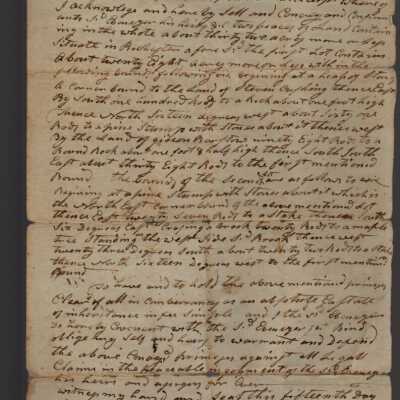 I acknowledge and have by Sell and Convey and Confirm
unto Sd. Ebenezer his heirs &c two peaces of Land Contain
ing in the whole about thirty two acres more or less
Situate in Rochester afore Sd. the first Lot Contains
about twenty Eight acres more or less with in the
following bounds following viz begining at a heap of Stones
a Corner bound to the Land of Steven Cushing thence East
By South one hundred Rods to a Rock about one foot high
thence North Sixteen degrees west about Sixty one
Rods to a pine Stump with Stones about it thence west
By the Land of gideon Barstow ninety Eight Rods to a
Round Rock about one foot & half high thence South South
East about thirty Eight Rods to the first mentioned
Bound the bounds of the Second are as follows to wit
Begining at a pine Stump with Stones about it which is
the North East Corner bound of the above mentioned Lot
thence East twenty Seven Rods to a Stake thence South
Six Degrees East Crossing a brook twenty Rods to a maple
tree Standing the west Side Sd. Brook thence west
twenty three degrees South about twenty two Rods to a Stake
thence North Sixteen degrees west to the first mentiond
Bound
To have and to hold the above mentioned primises
Clear of all in Cumberances as an absolute Estate
of inheritance in fee Simple and I the Sd. Ebenezer
do hereby Covenant with the Sd. Ebenezer Jr. Bind
obligeing Self and heirs to warrant and Defend
the above primises against all Legall
Claims in the peaceable injoyment of the Sd. Ebenezer
his heirs and asigns for Ever
witness my hand and Seal this fifteenth day